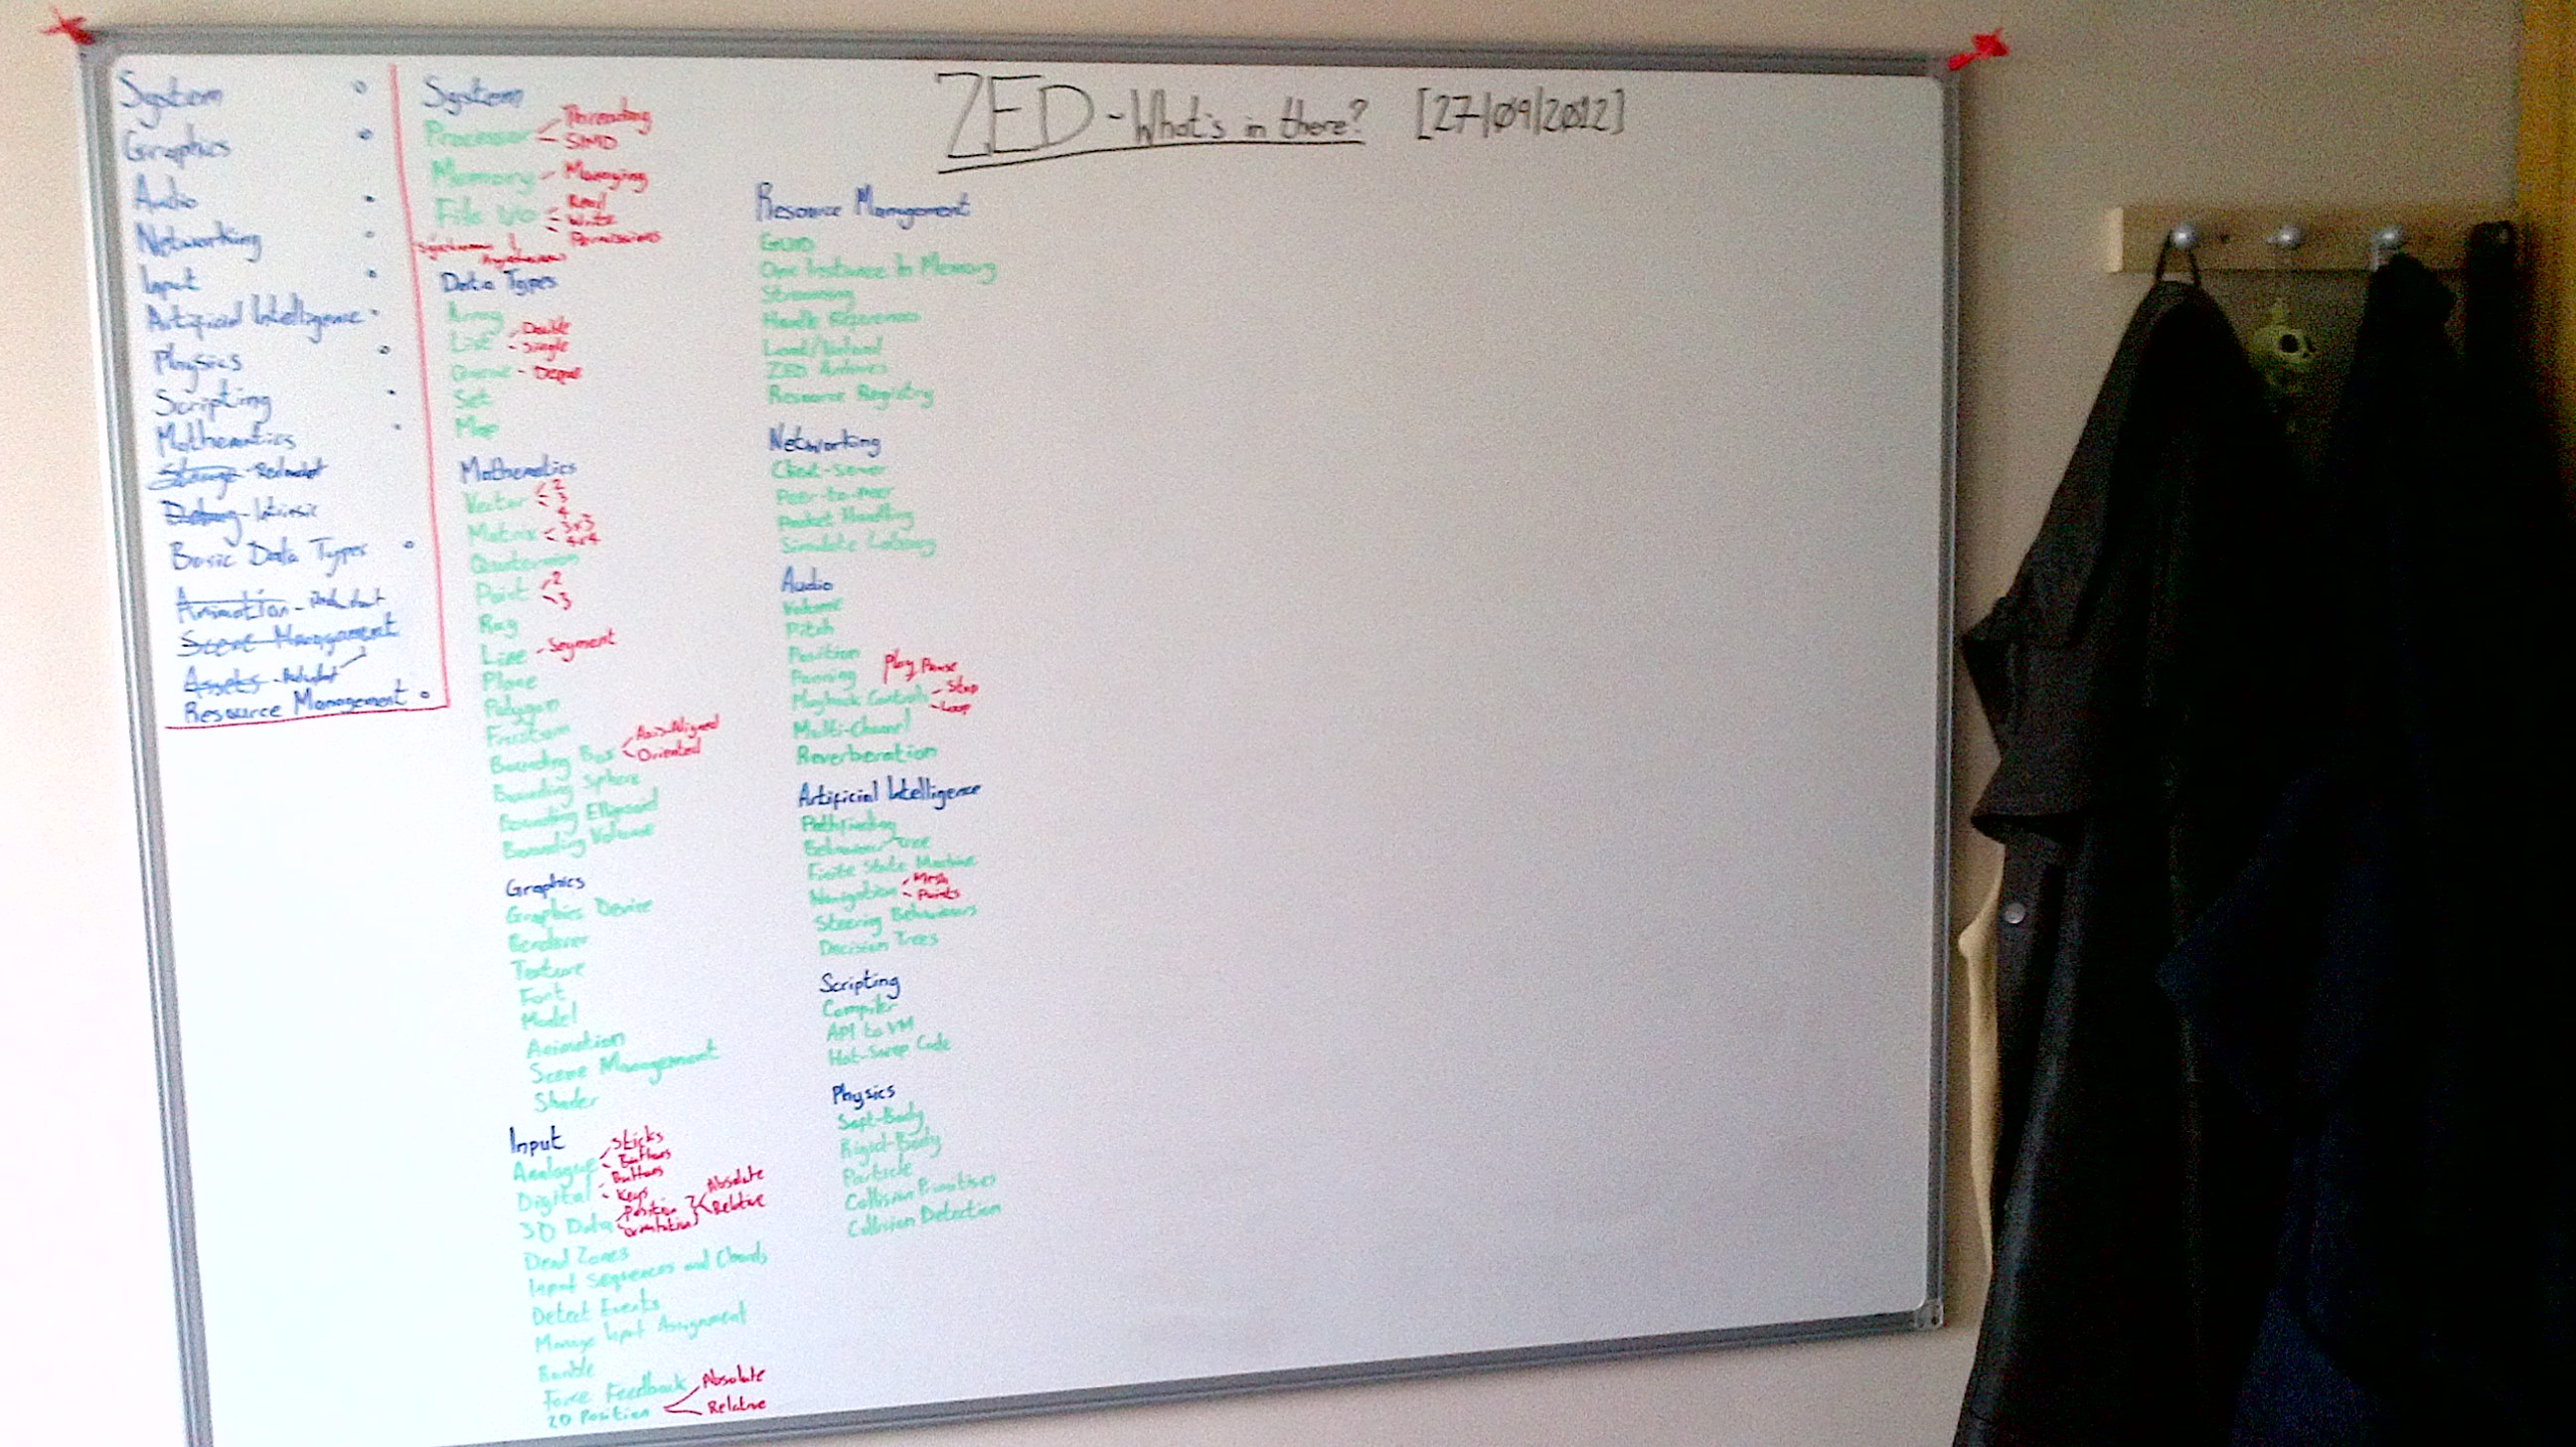 ZED - What's in there? [27/09/2012]
System
Graphics
Audio
Networking
Input
Artificial Intelligence
Physics
Scripting
Mathematics
Storage - Redundant
Debug - Intrinsic
Basic Data Types
Animation - Redundant
Scene Management
Assets - Redundant
Resource Management
System
Processor - Threading
- SIMD
Memory - Managing
File I/O - Read
- Write
- Permissions
Synchronous &
Asynchronous
Data Types
Array
List - Double
- Single
Queue - Deque
Set
Map
Mathematics
Vector - 2
- 3
4
Matrix - 3x3
4x4
Quaternion
Point - 2
3
Ray
Line - Segment
Plane
Polygon
Frustum
Bounding Box - Axis-Aligned
Oriented
Bounding Sphere
Bounding Ellipsoid
Bounding Volume
Graphics
Graphics Device
Renderer
Texture
Font
Model
Animation
Scene Management
Shader
Input
Analogue - Sticks
- Buttons
Digital - Buttons
- Keys
3D Data - Position } Absolute
Orientation } Relative
Dead Zones
Input Sequences and Chords
Detect Events
Manage Input Assignment
Rumble
Force Feedback
2D Position - Absolute
Relative
Resource Management
GUID
One Instance in Memory
Streaming
Handle References
Load/Unload
ZED Archives
Resource Registry
Networking
Client-Server
Peer-to-Peer
Packet Handling
Simulate Latency
Audio
Volume
Pitch
Position
Panning
Play Pause
Playback Controls - Stop
- Loop
Multi-Channel
Reverberation
Artificial Intelligence
Pathfinding
Behaviour Tree
Finite State Machine
Navigation - Mesh
- Points
Steering Behaviours
Decision Trees
Scripting
Compiler
API to VM
Hot-Swap Code
Physics
Soft-Body
Rigid-Body
Particle
Collision Primitives
Collision Detection